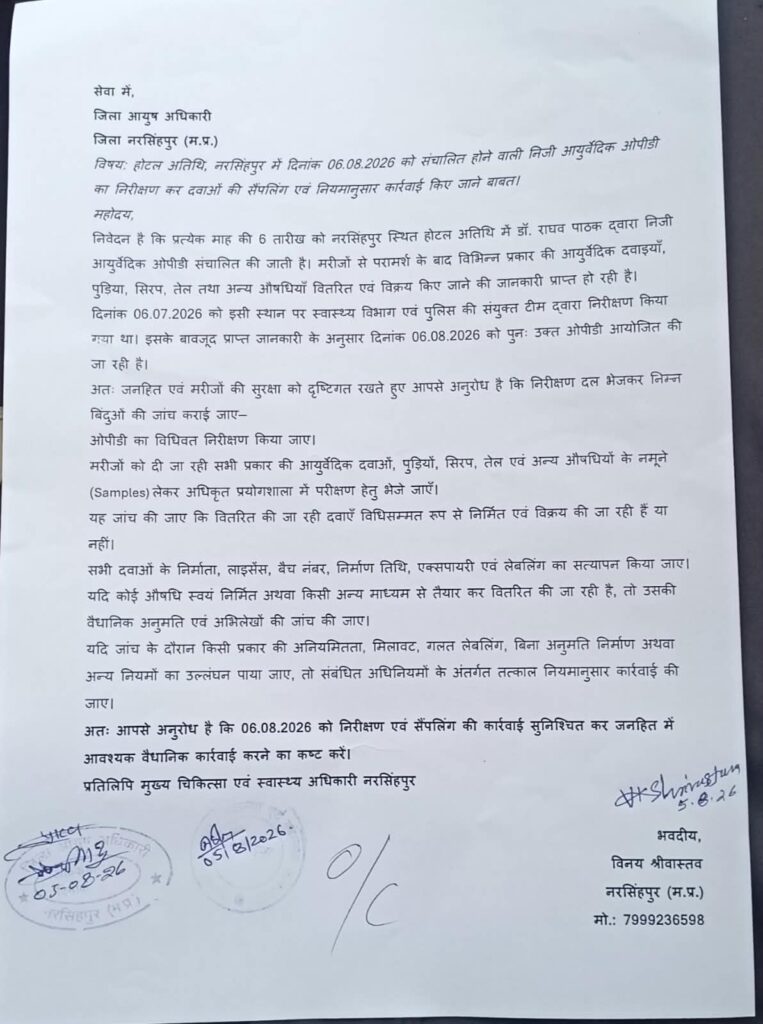 सेवा में,
जिला आयुष अधिकारी
जिला नरसिंहपुर (म.प्र.)
विषय: होटल अतिथि, नरसिंहपुर में दिनांक 06.08.2026 को संचालित होने वाली निजी आयुर्वेदिक ओपीडी
का निरीक्षण कर दवाओं की सैंपलिंग एवं नियमानुसार कार्रवाई किए जाने बाबत।
महोदय,
निवेदन है कि प्रत्येक माह की 6 तारीख को नरसिंहपुर स्थित होटल अतिथि में डॉ. राघव पाठक द्वारा निजी
आयुर्वेदिक ओपीडी संचालित की जाती है। मरीजों से परामर्श के बाद विभिन्न प्रकार की आयुर्वेदिक दवाइयाँ,
पुड़िया, सिरप, तेल तथा अन्य औषधियाँ वितरित एवं विक्रय किए जाने की जानकारी प्राप्त हो रही है।
दिनांक 06.07.2026 को इसी स्थान पर स्वास्थ्य विभाग एवं पुलिस की संयुक्त टीम द्वारा निरीक्षण किया
गया था। इसके बावजूद प्राप्त जानकारी के अनुसार दिनांक 06.08.2026 को पुनः उक्त ओपीडी आयोजित की
जा रही है।
अतः जनहित एवं मरीजों की सुरक्षा को दृष्टिगत रखते हुए आपसे अनुरोध है कि निरीक्षण दल भेजकर निम्न
बिंदुओं की जांच कराई जाए—
ओपीडी का विधिवत निरीक्षण किया जाए।
मरीजों को दी जा रही सभी प्रकार की आयुर्वेदिक दवाओं, पुड़ियों, सिरप, तेल एवं अन्य औषधियों के नमूने
(Samples) लेकर अधिकृत प्रयोगशाला में परीक्षण हेतु भेजे जाएँ।
यह जांच की जाए कि वितरित की जा रही दवाएँ विधिसम्मत रूप से निर्मित एवं विक्रय की जा रही हैं या
नहीं।
सभी दवाओं के निर्माता, लाइसेंस, बैच नंबर, निर्माण तिथि, एक्सपायरी एवं लेबलिंग का सत्यापन किया जाए।
यदि कोई औषधि स्वयं निर्मित अथवा किसी अन्य माध्यम से तैयार कर वितरित की जा रही है, तो उसकी
वैधानिक अनुमति एवं अभिलेखों की जांच की जाए।
यदि जांच के दौरान किसी प्रकार की अनियमितता, मिलावट, गलत लेबलिंग, बिना अनुमति निर्माण अथवा
अन्य नियमों का उल्लंघन पाया जाए, तो संबंधित अधिनियमों के अंतर्गत तत्काल नियमानुसार कार्रवाई की
जाए।
अतः आपसे अनुरोध है कि 06.08.2026 को निरीक्षण एवं सैंपलिंग की कार्रवाई सुनिश्चित कर जनहित में
आवश्यक वैधानिक कार्रवाई करने का कष्ट करें।
प्रतिलिपि मुख्य चिकित्सा एवं स्वास्थ्य अधिकारी नरसिंहपुर
5.8.26
भवदीय,
विनय श्रीवास्तव
नरसिंहपुर (म.प्र.)
मो.: 7999236598
05-08-26
नरसिंहपुर (म.प्र.)
05/8/2026.
O/C